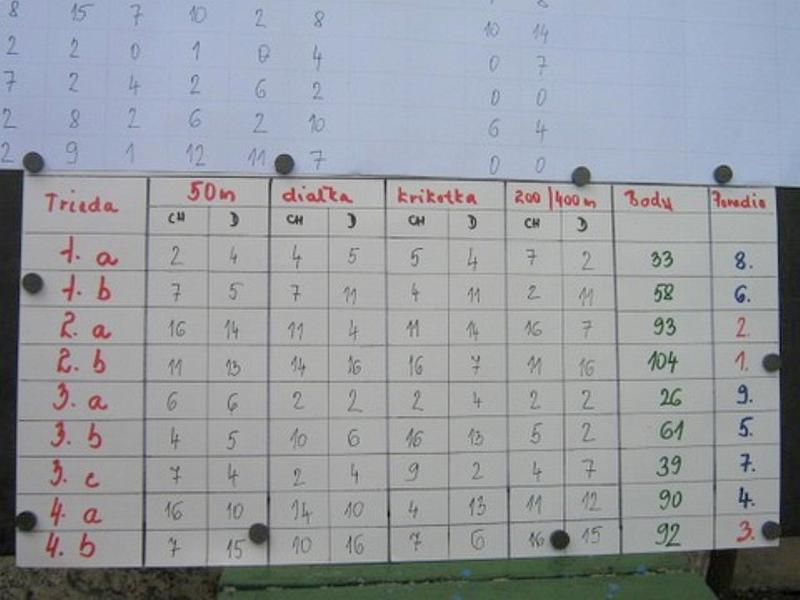 8 15 7 10 2 8
10 14
2 2 0 1 0 4
0 7
7 2 4 2 6 2
0 0
2 8 2 6 2 10
6 4
2 9 1 12 11 7
0 0
Trieda 50m diaľka krikotka 200/400m Body Poradie
CH D CH D CH D CH D
1. a 2 4 4 5 5 4 7 2 33 8.
1. b 7 5 7 11 4 11 2 11 58 6.
2. a 16 14 11 4 11 14 16 7 93 2.
2. b 11 13 14 16 16 7 11 16 104 1.
3. a 6 6 2 2 2 4 2 2 26 9.
3. b 4 5 10 6 16 13 5 2 61 5.
3. c 7 4 2 4 9 2 4 7 39 7.
4. a 16 10 14 10 4 13 11 12 90 4.
4. b 7 15 10 16 7 6 16 15 92 3.